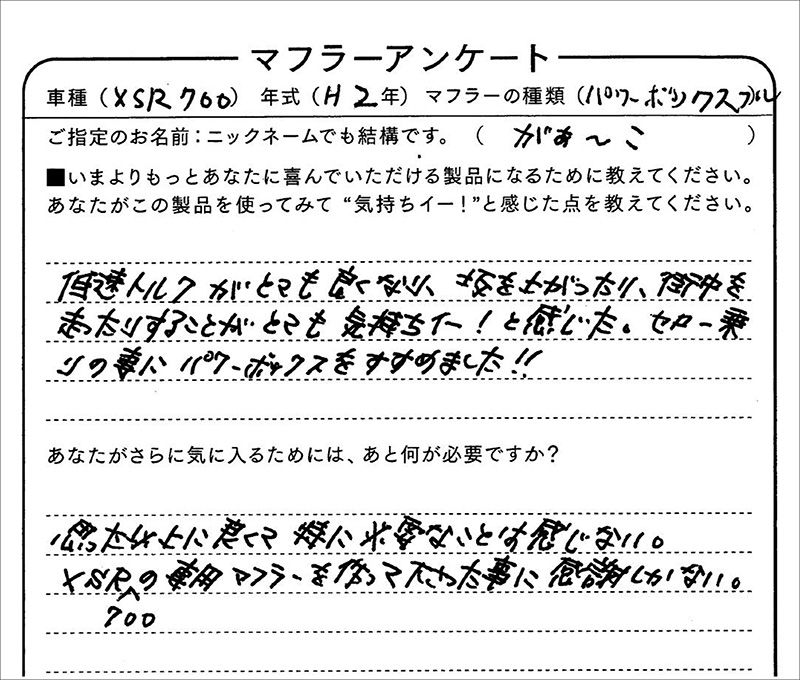 マフラーアンケート
車種（XSR700） 年式（H2年） マフラーの種類（パワーボックスフル
ご指定のお名前：ニックネームでも結構です。（ がぁ〜こ ）
■いまよりもっとあなたに喜んでいただける製品になるために教えてください。
あなたがこの製品を使ってみて“気持ちイー！”と感じた点を教えてください。
低速トルクがとても良くなり、坂を上がったり、街中を
走ったりすることがとても気持ちイー！と感じた。セロー乗
りの妻にパワーボックスをすすめました!!
あなたがさらに気に入るためには、あと何が必要ですか？
思った以上に良くて特に必要なことは感じない。
XSRの専用マフラーを作って下さった事に感謝しかない。
700